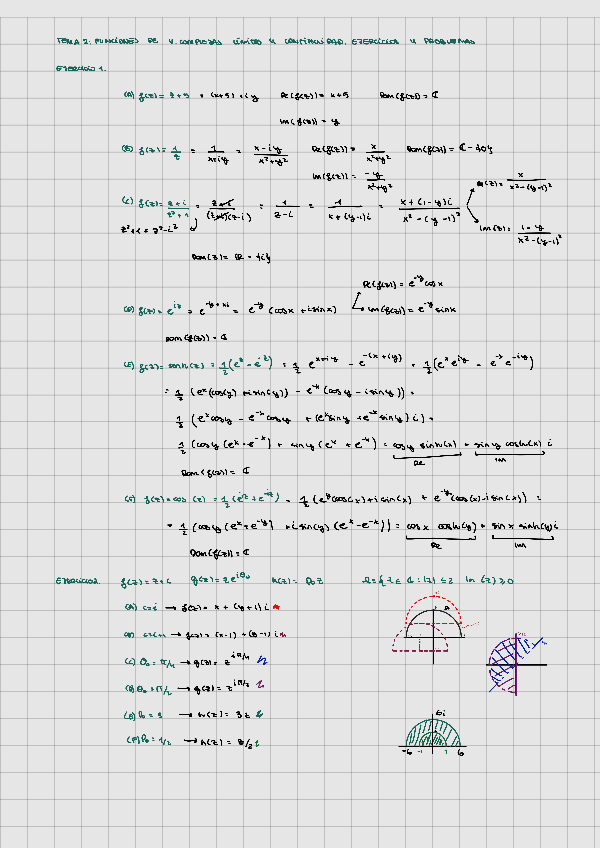 TEMA 2: FUNCIONES DE V. COMPLEJAS LÍMITES Y CONTINUIDAD. EJERCICIOS Y PROBLEMAS
EJERCICIO 1.
(A) f(z) = z+5 = (x+5) + iy Re(f(z)) = x+5 Dom(f(z)) = ℂ
Im(f(z)) = y
(B) f(z) = 1/z = 1/(x+iy) = (x-iy)/(x²+y²) Re(f(z)) = x/(x²+y²) Dom(f(z)) = ℂ - {0}
Im(f(z)) = -y/(x²+y²)
(C) f(z) = (z+i)/(z²+1) = (z+i)/((z+i)(z-i)) = 1/(z-i) = 1/(x+(y-1)i) = (x+(1-y)i)/(x²-(y-1)²) Re(z) = x/(x²-(y-1)²)
z²+1 = z²-i² Im(z) = (1-y)/(x²-(y-1)²)
Dom(z) = ℝ - {i}
Re(f(z)) = e^-y cos x
(D) f(z) = e^iz = e^(-y+xi) = e^-y (cos x + i sin x) Im(f(z)) = e^-y sin x
Dom(f(z)) = ℂ
(E) f(z) = senh(z) = 1/2 (e^z - e^-z) = 1/2 e^(x+iy) - e^-(x+iy) = 1/2 (e^x e^iy - e^-x e^-iy)
= 1/2 (e^x (cos(y) + i sin(y)) - e^-x (cos y - i sin y)) =
1/2 (e^x cos y - e^-x cos y + (e^x sin y + e^-x sin y) i) =
1/2 (cos y (e^x - e^-x) + sin y (e^x + e^-x) = cos y sinh(x) + sin y cosh(x) i
Re Im
Dom(f(z)) = ℂ
f(z) = cos(z) = 1/2 (e^iz + e^-iz) = 1/2 (e^y cos(x) + i sin(x) + e^-y cos(x) - i sin(x)) =
Dom(f(z)) = ℂ
Re Im
EJERCICIO 2. f(z) = z+c g(z) = z e^iθ₀ h(z) = ρ₀ z
(A) c=i → f(z) = x + (y+1) i
(C) θ₀ = π/4 → g(z) = z^iπ/4
(D) θ₀ = π/2 → g(z) = z^iπ/2
(E) ρ₀ = 3 → h(z) = 3z
6i
(F) ρ₀ = 1/2 → h(z) = z/2
-6 -1 1 6